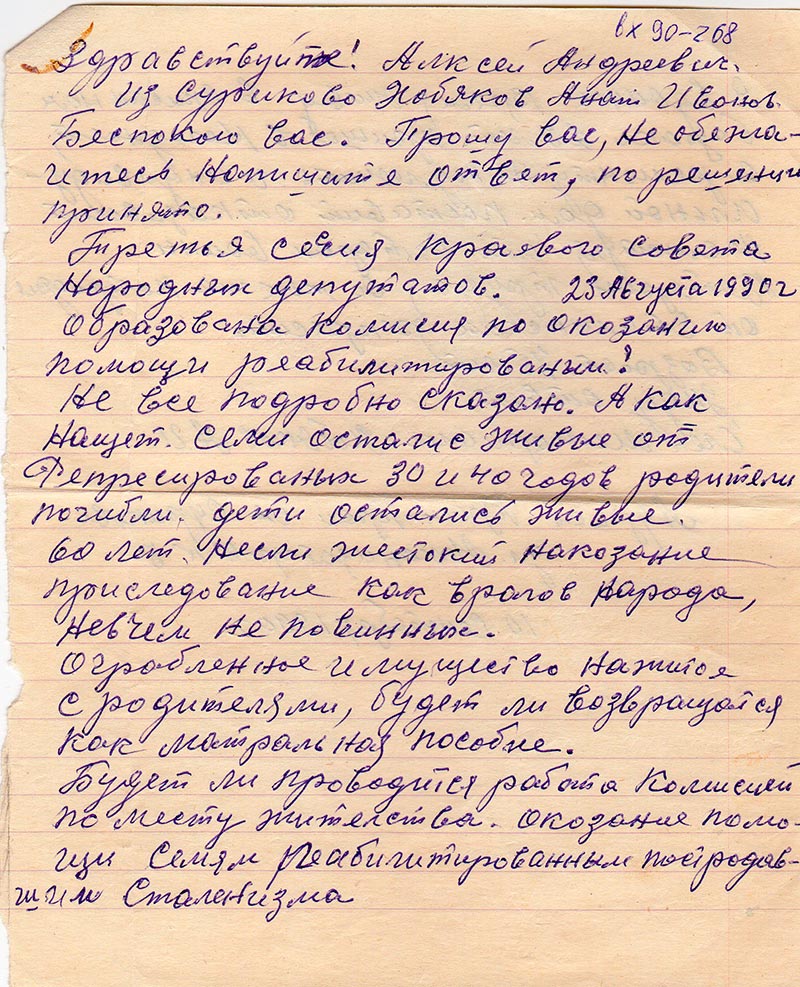 вх 90-268
Здравствуйте! Алксей Андреевич.
Из Суриково Хобяков Анат Иванов.
Беспокою вас. Прошу вас, не обежа-
итесь напишите ответ, по решению
принято.
Третья сесия Краевого совета
Народных депутатов. 23 Августа 1990г
Образована комисия по окозанию
помощи реабилитированым!
Не все подробно сказано. А как
нащет. Семи осталис живые от
Репресированых 30 и 40 годов родители
погибли. дети остались живые.
60 лет. Несли жестокий накозание
приследование как врагов народа,
невчем не повинных.
Ограбленное имущество нажитое
с родителями, будет ли возвращатся
как матральная пособие.
Будет ли проводится работа Комисией
по месту жителства. окозание помо-
щи семям реабилитированным постродав-
шим Сталенизма